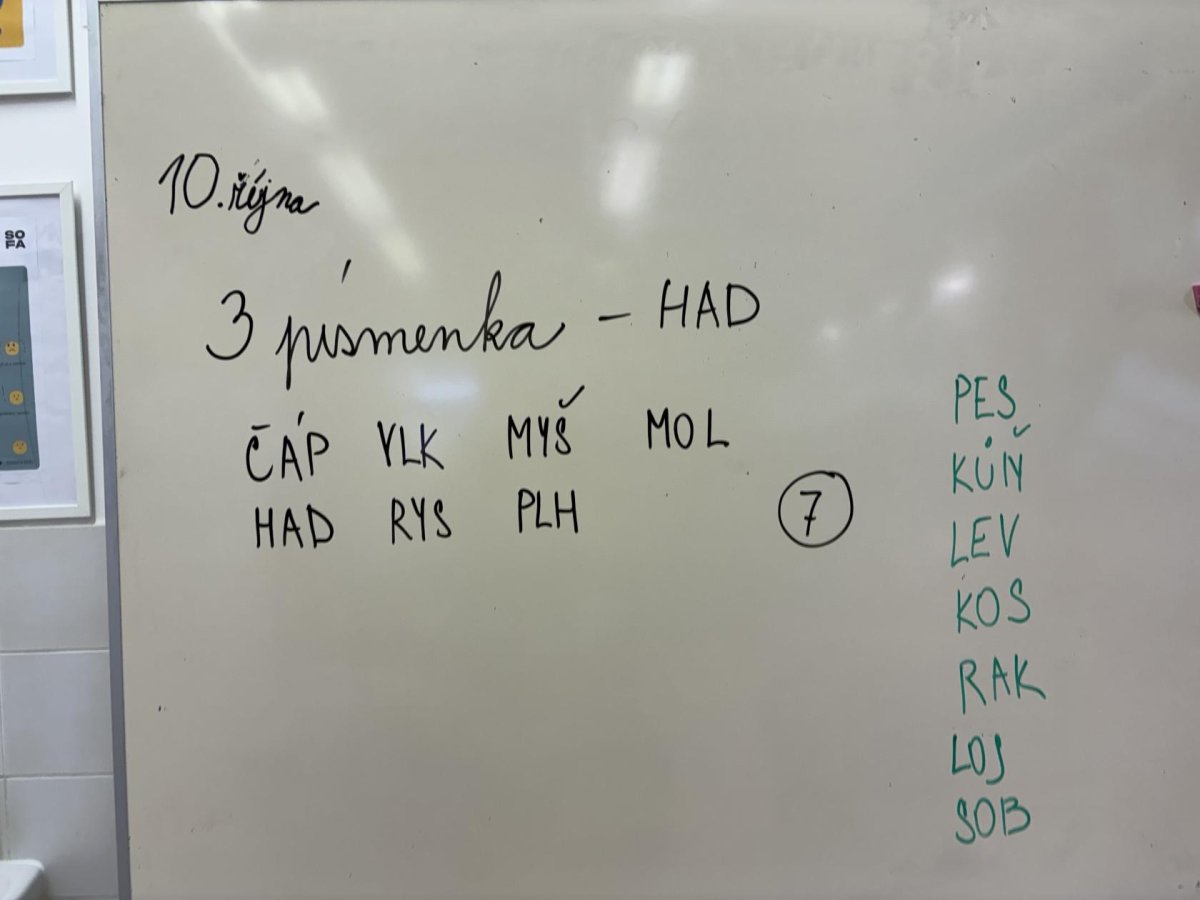 10. října
3 písmenka - HAD
ČÁP VLK MYŠ MOL
HAD RYS PLH
7
PES
KŮŇ
LEV
KOS
RAK
LOJ
SOB
SO
FA